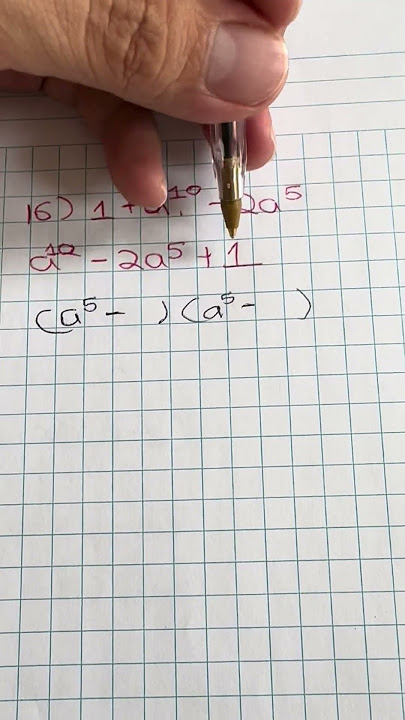 16) 1 + a¹⁰ - 2a⁵
a¹⁰ - 2a⁵ + 1
(a⁵ -   ) (a⁵ -   )